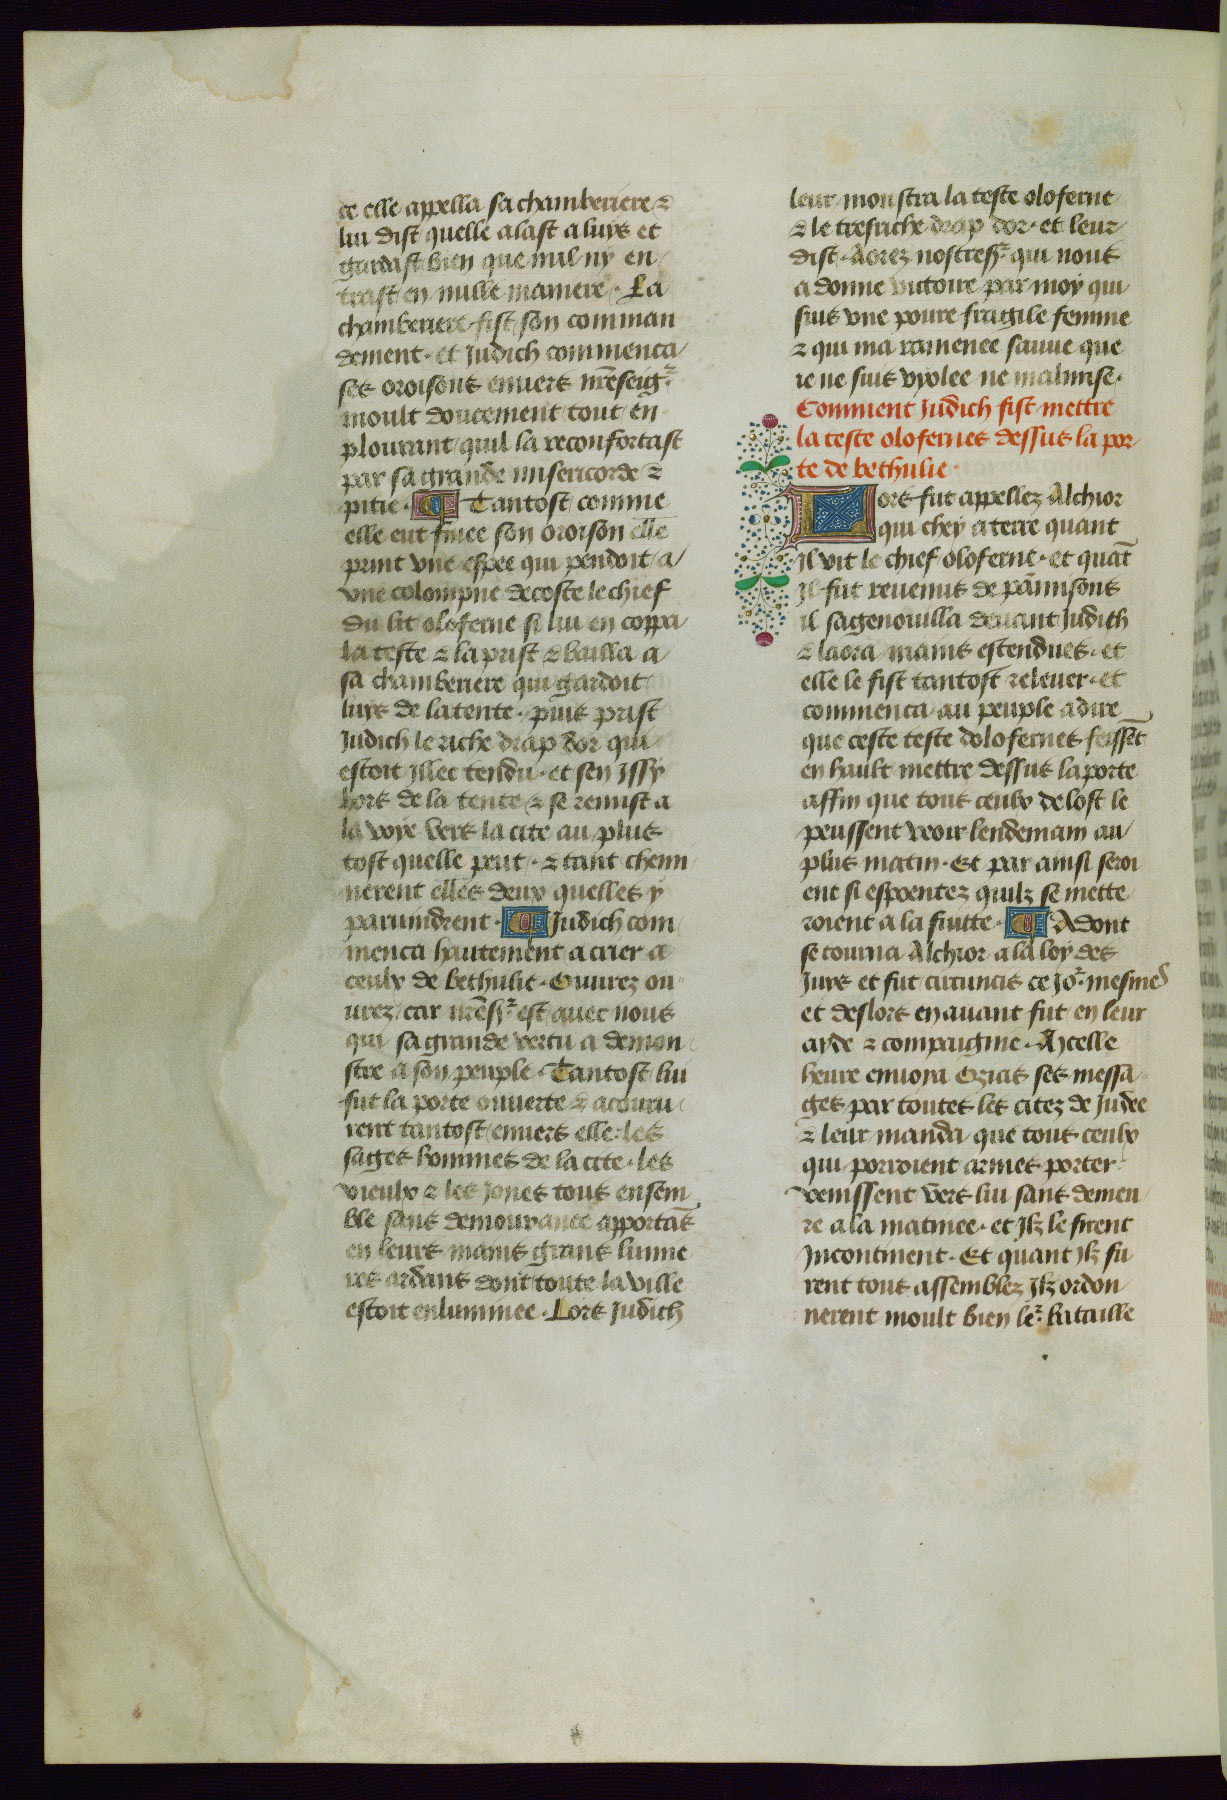 ce elle appella sa chamberiere ⁊
lui dist quelle alast a luys et
gardast bien que nul ny en
trast en nulle maniere. La
chamberiere fist son comman
dement. et Judich commenca
ses oroisons enuers nr̄eseigr̄
moult doucement tout en
plourant quil la reconfortast
par sa grande misericorde ⁊
pitie. Tantost comme
elle eut finee son oroison elle
print vne espee qui pendoit a
vne colompne decoste le chief
du lit oloferne si lui en coppa
la teste ⁊ la prist ⁊ bailla a
sa chamberiere qui gardoit
luys de la tente. puis prist
Judich le riche drap dor qui
estoit Illec tendu. et sen Jssy
hors de la tente ⁊ se remist a
la voye vers la cite au plus
tost quelle peut. ⁊ tant chemi
nerent elles deux quelles y
paruindrent. Judich com
menca hautement a crier a
ceulx de bethulie. Ouurez ou
urez car nr̄e sr̄ est auec nous
qui sa grande vertu a demon
stre a son peuple. Tantost lui
fut la porte ouuerte ⁊ acouru
rent tantost enuers elle. les
sages hommes de la cite. les
vieulx ⁊ les Jones tous ensem
ble sans demourance apportās
en leurs mains grans lumie
res ardans dont toute la ville
estoit enluminee. Lors Judich
leur monstra la teste oloferne
⁊ le tresriche drap dor. et leur
dist. Aorez nostre sr̄ qui nous
a donne victoire par moy qui
suis vne poure fragile femme
⁊ qui ma ramenee sauue que
ie ne suis vyolee ne malmise.
Comment Judich fist mettre
la teste olofernes dessus la por
te de bethulie.
Lors fut appellez Alchior
qui chey a terre quant
Jl vit le chief oloferne. et quāt
Jl fut reuenus de pāmisons
il sagenouilla deuant Judith
⁊ laora mains estendues. et
elle le fist tantost releuer. et
commenca au peuple a dire
que ceste teste dolofernes feissēt
en hault mettre dessus la porte
affin que tous ceulx de lost le
peussent veoir lendemain au
plus matin. Et par ainsi seroi
ent si espoentez quilz se mette
roient a la fuitte. Adont
se tourna Alchior a la loy des
Juys et fut circuncis ce Jor̄ mesmes
et deslors en auant fut en leur
ayde ⁊ compaignie. A ycelle
heure enuoya Ozias ses messa
ges par toutes les citez de Judee
⁊ leur manda que tous ceulx
qui porroient armes porter
venissent vers lui sans demeu
re a la matinee. et Jlz le firent
Jncontinent. Et quant Jlz fu
rent tous assemblez Jlz ordon
nerent moult bien ler̄ bataille